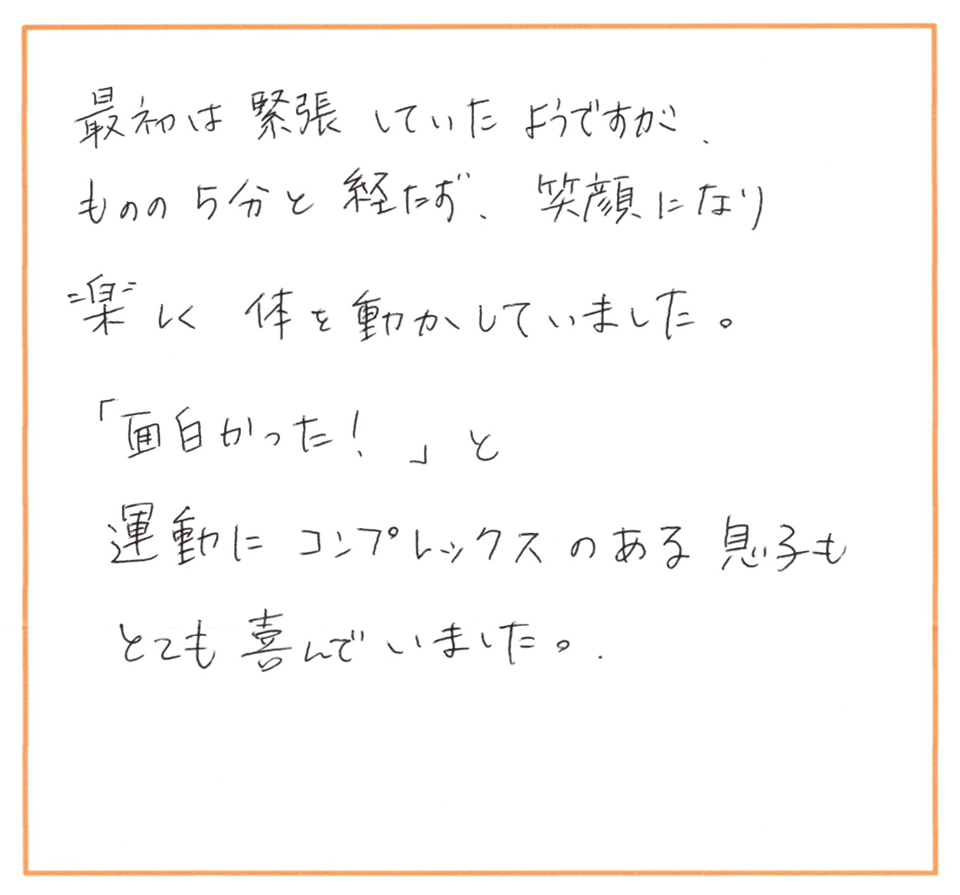 最初は緊張していたようですが、
ものの5分と経たず、笑顔になり
楽しく体を動かしていました。
「面白かった！」と
運動にコンプレックスのある息子も
とても喜んでいました。